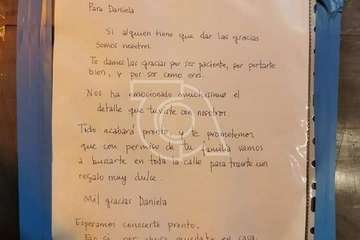 Para Daniela
Si alguien tiene que dar las gracias
somos nosotros.
Te damos las gracias por ser paciente, por portarte
bien, y por ser como eres.
Nos ha emocionado muchísimo el
detalle que tuviste con nosotros.
Todo acabará pronto, y te prometemos
que con permiso de tu familia vamos
a buscarte en toda la calle para traerte un
regalo muy dulce.
Mil gracias Daniela
Esperamos conocerte pronto,
por ahora quedate en casa.